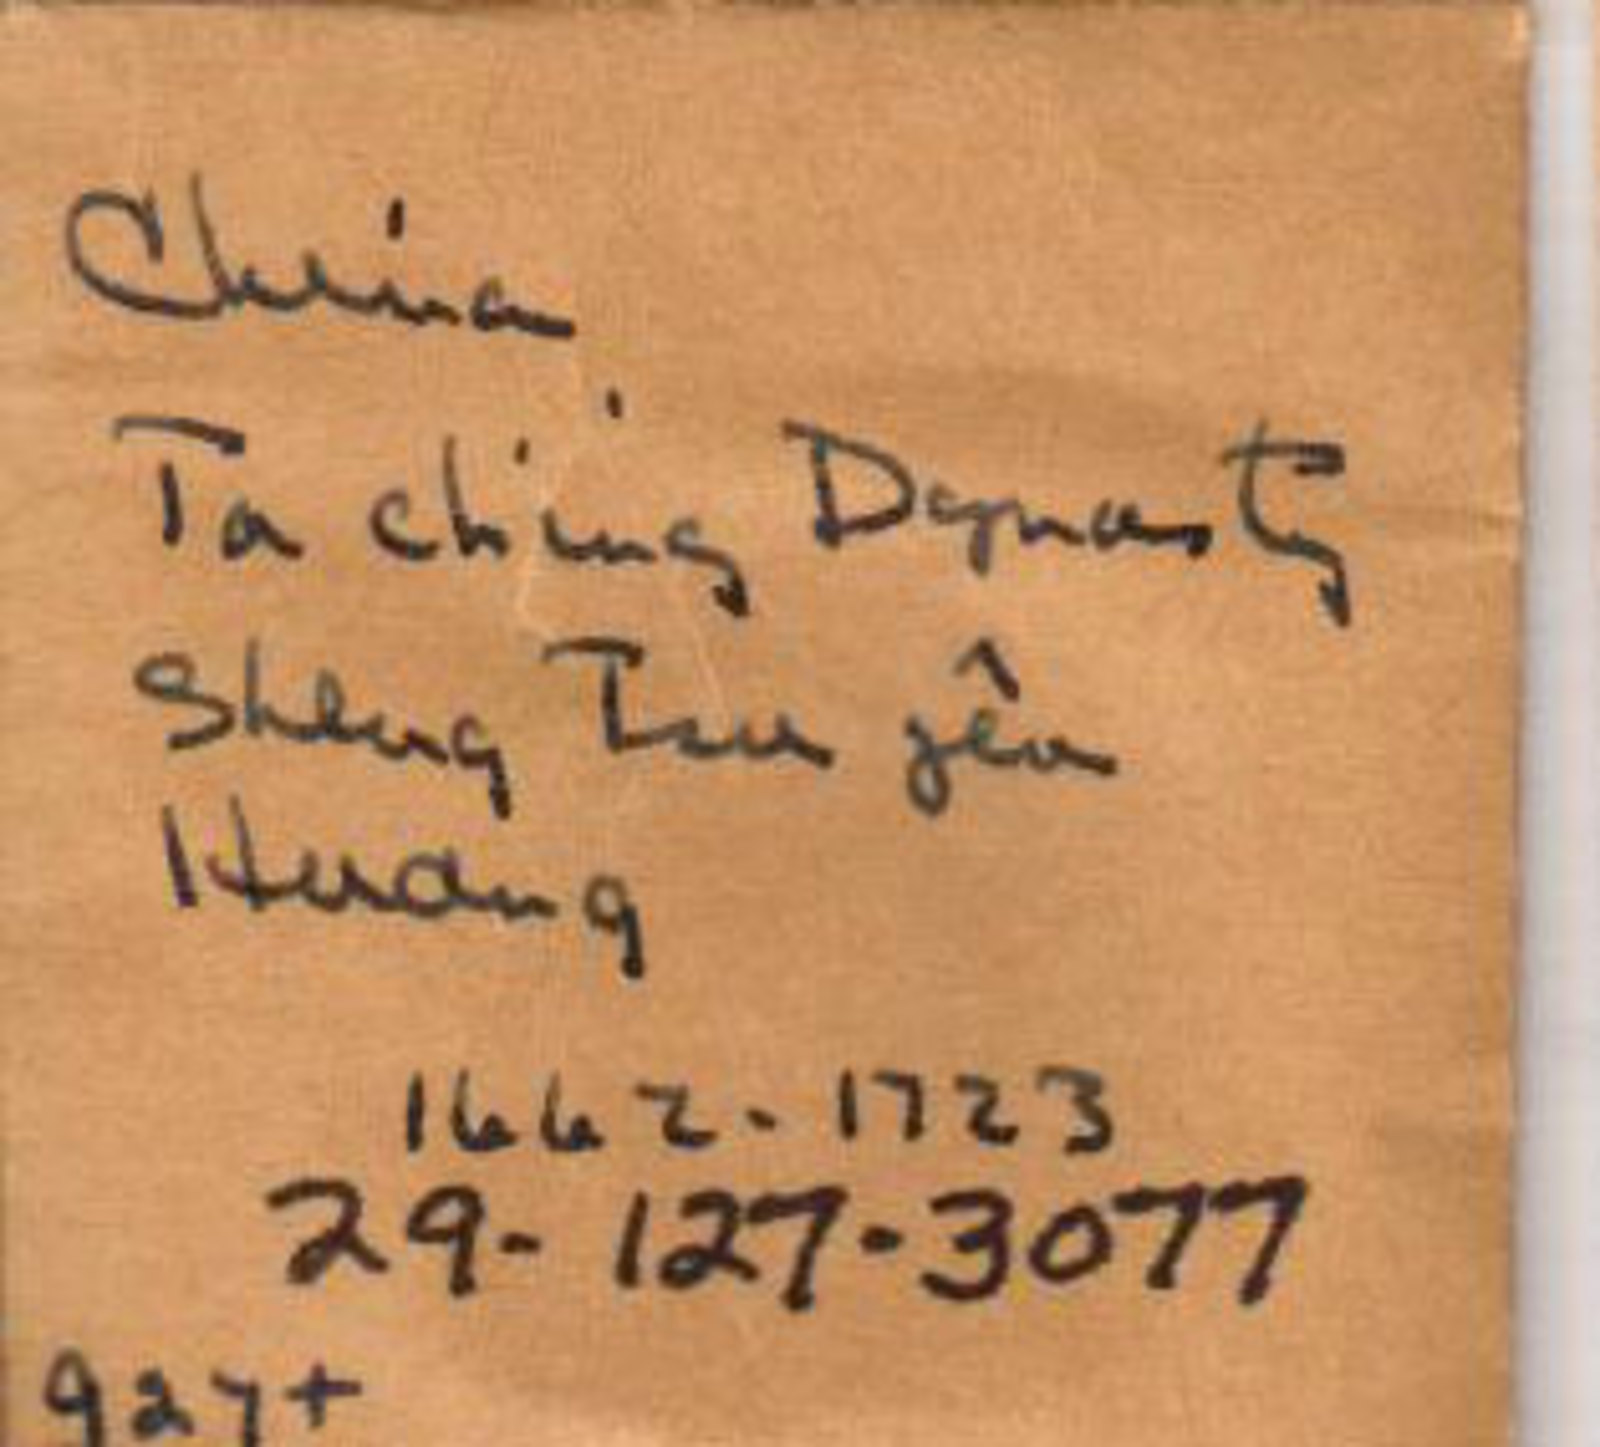 China
Ta ch'ing Dynasty
Sheng Tsu yên
Huang
1662-1723
29-127-3077
927+